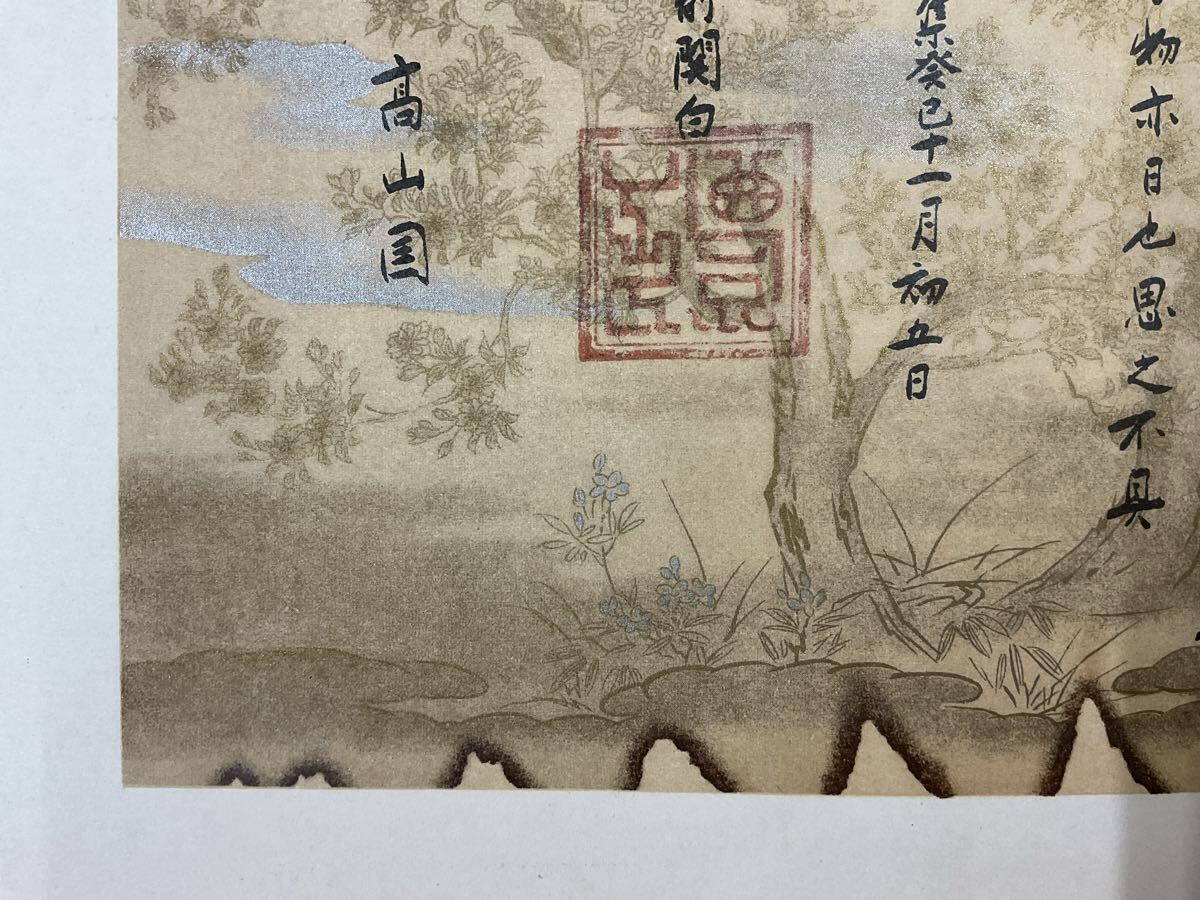 物亦日也思之不具
集癸巳十一月初五日
前関白
高山国